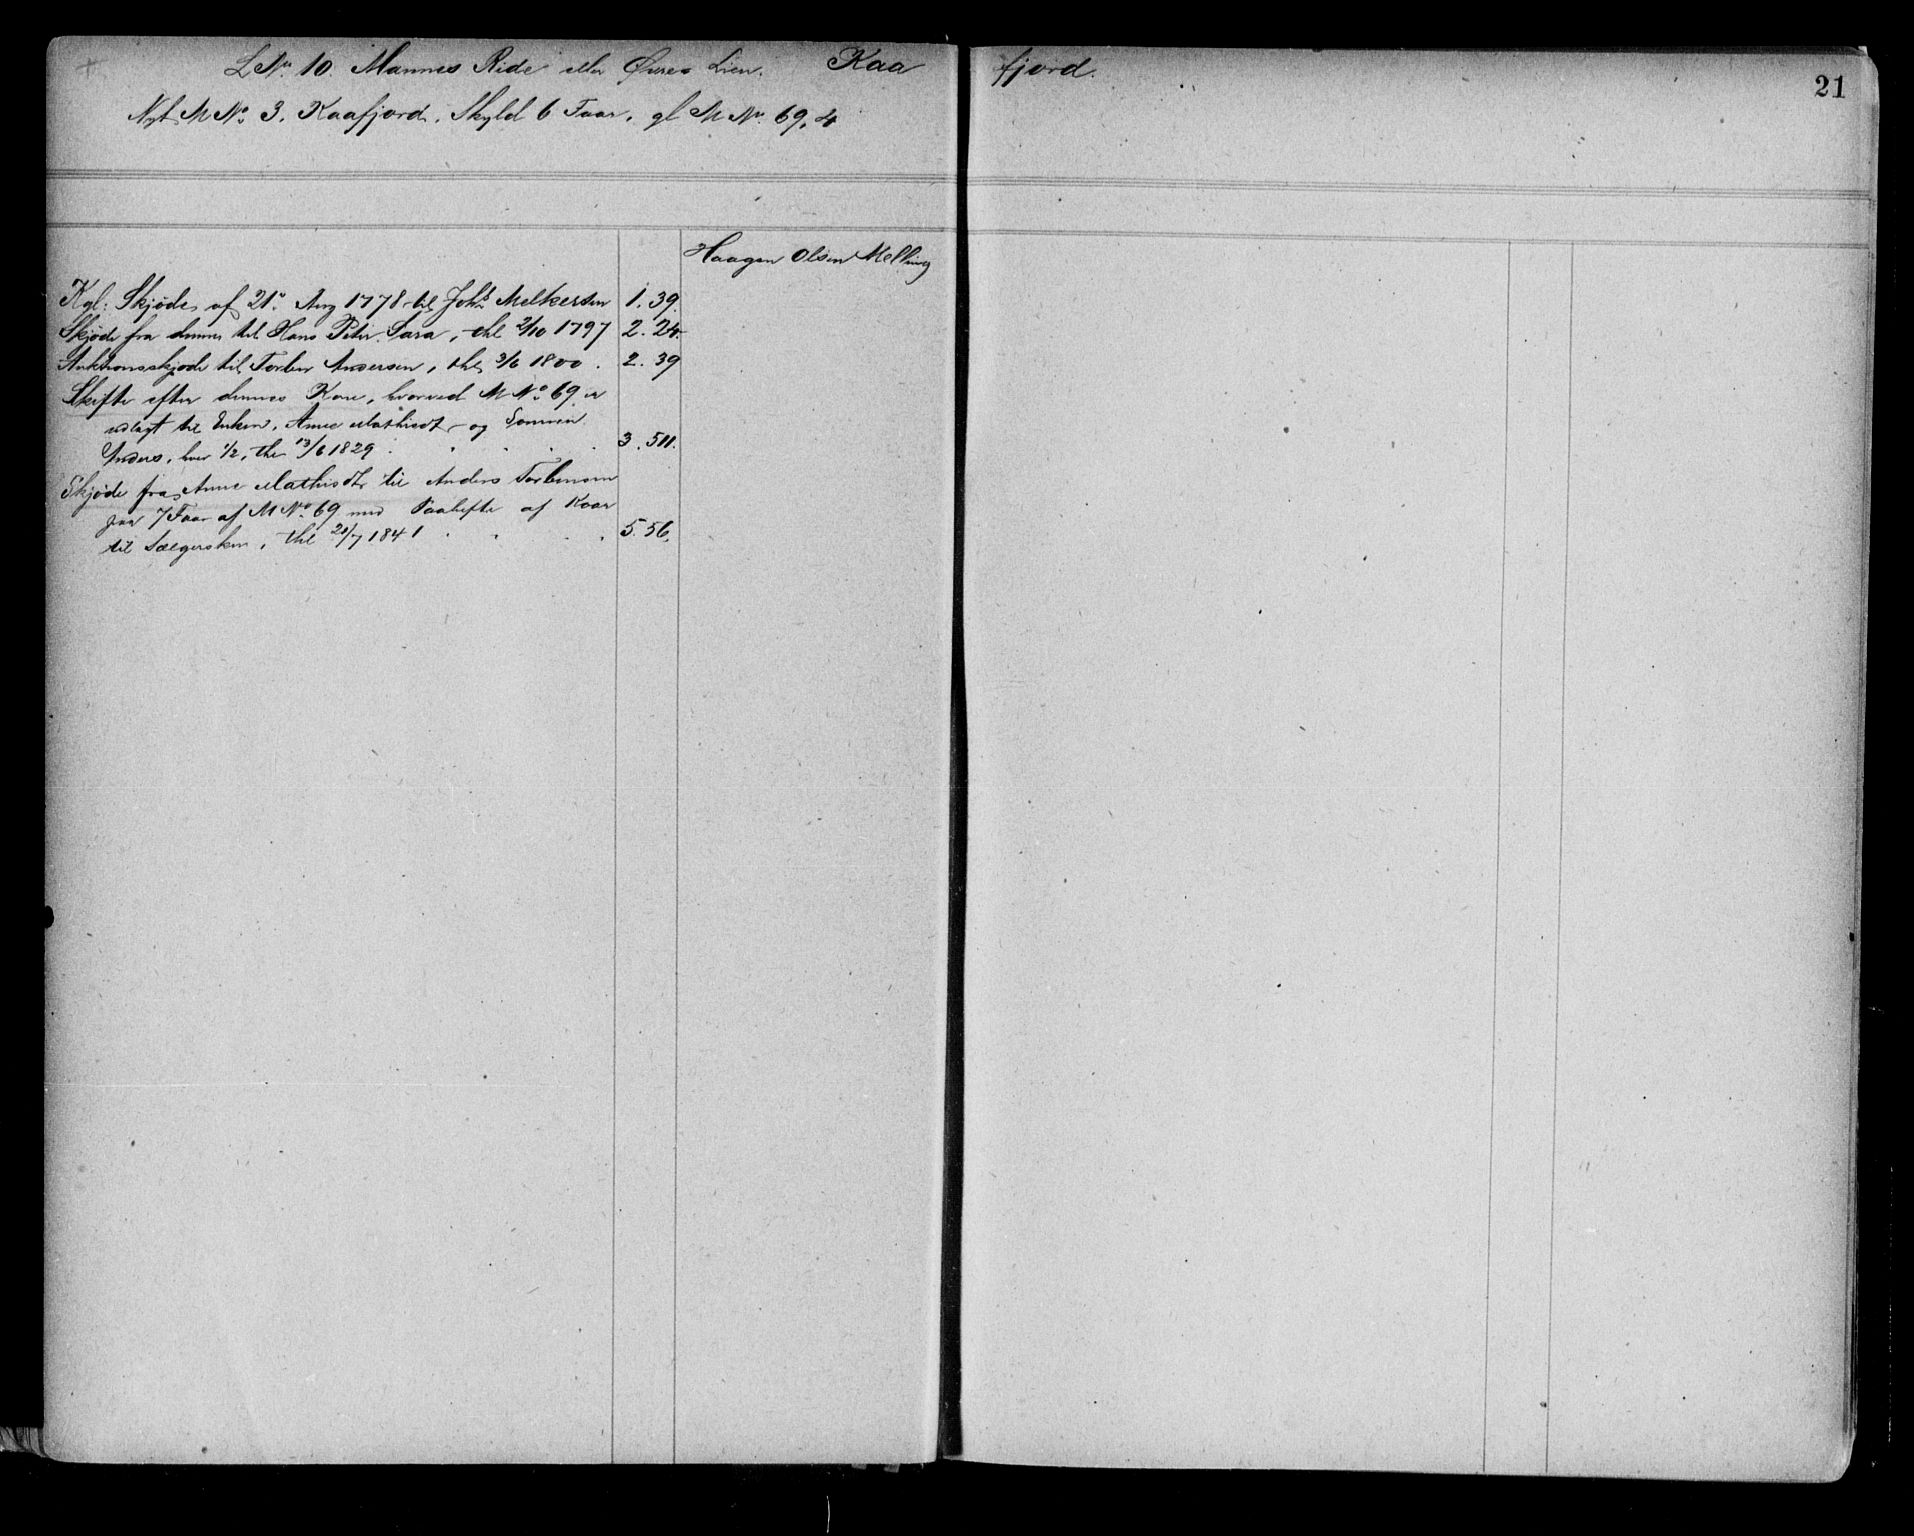 LNo 10. Mannes Ride eller Øvre Lien. Kaafjord. 21
Nyt M No 3. Kaafjord. Skyld 6 Faar, gl M No. 69,4
Haagen Olsen Melling
Kgl. Skjøde af 21de Aug 1778 til Johs Melkersen 1. 39.
Skjøde fra denne til Hans Peter Sara, thl 2/10 1797 2. 24.
Auktionsskjøde til Torben Andersen, thl 3/6 1800. 2. 39
Skifte efter dennes Kone, hvorved M No 69 er
udlagt til Enken, Anne Mathisdtr og Sønnen
Anders, hver 1/2, thl 13/6 1829 3. 511.
Skjøde fra Anne Mathisdtr til Anders Torbensen
paa 7 Faar af M No 69 med Paahefte af Kaar
til Sælgersken, thl 20/7 1841 5. 56.